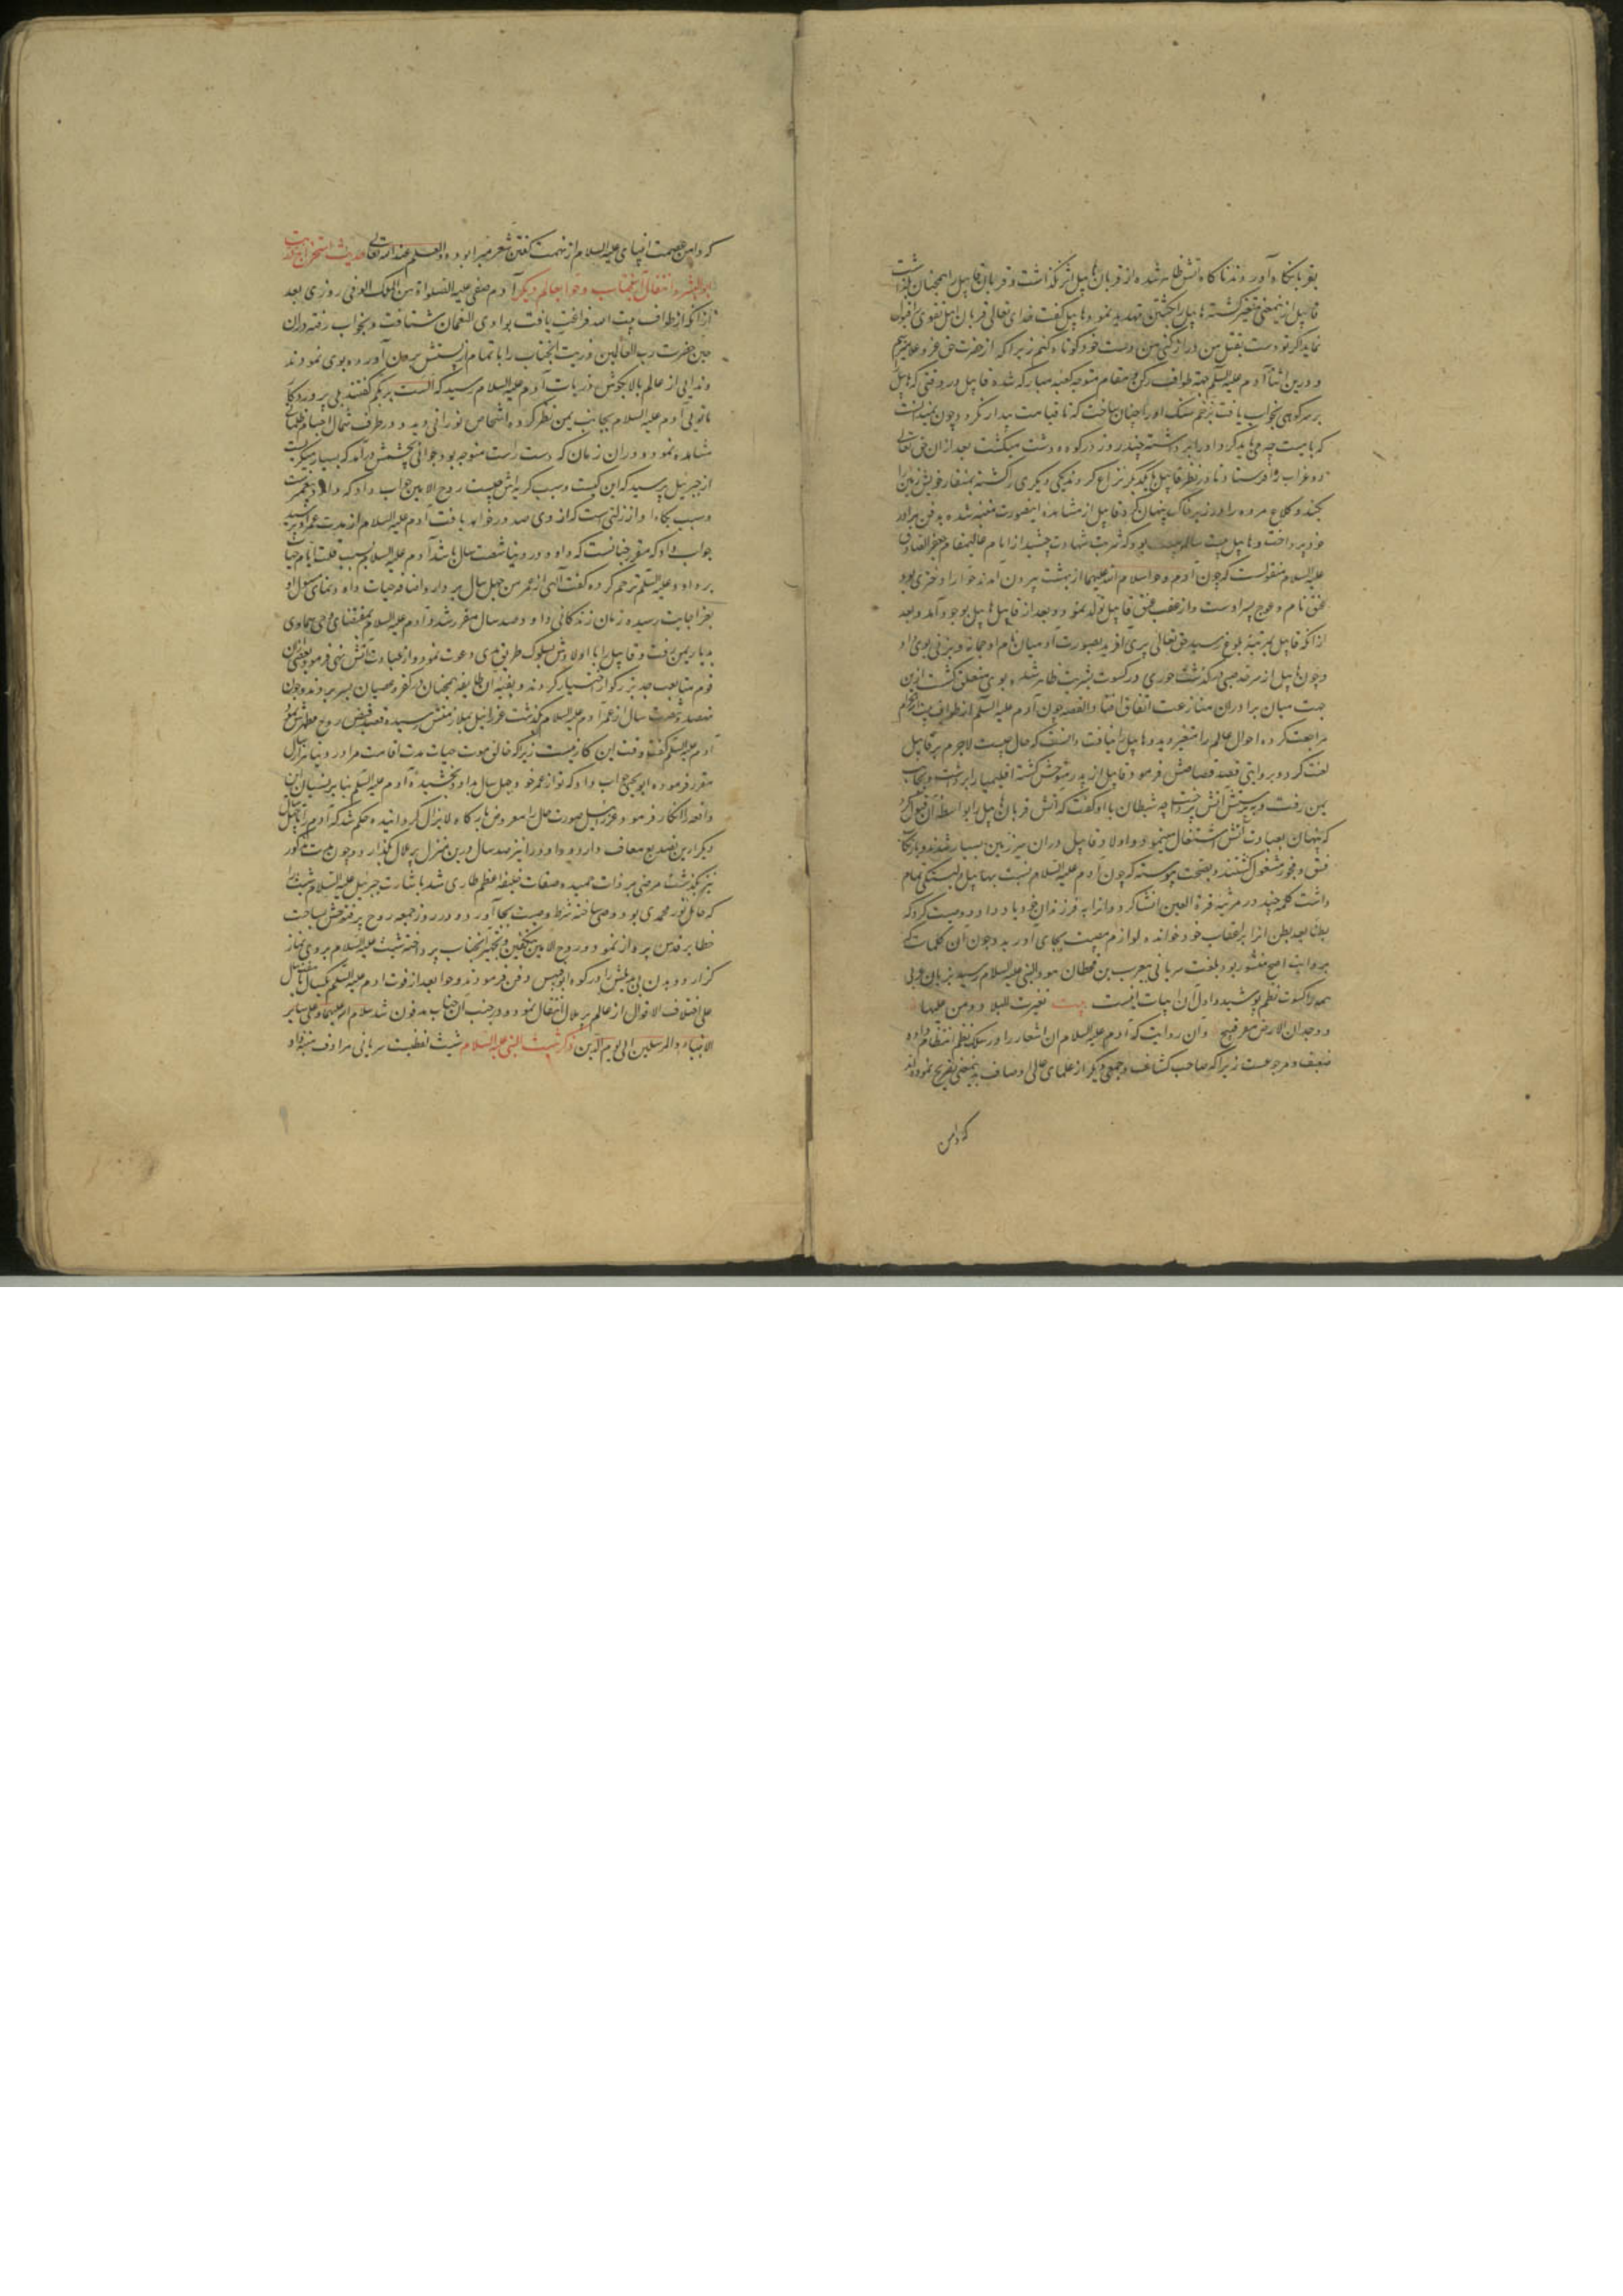 بقربانگاه آوردند ناگاه آتش ظاهر شده از قربان هابیل اثر نگذاشت و قربان قابیل را همچنان بگذاشت
قابیل ازینمعنی متغیر گشته هابیل را بکشتن تهدید نمود هابیل گفت خدای تعالی قربان اهل تقوی را قبول
نماید اگر تو دست بقتل من دراز کنی من دست خود کوتاه کنم زیرا که از حضرت حق عز و علا میترسم
و درین اثنا آدم علیه السلم جهة طواف رکن و مقام متوجه کعبه مبارکه شد و قابیل در وقتی که هابیل
بر سر کوهی بخواب یافت بزخم سنک او را چنان ساخت که تا قیامت بیدار نکردد و چون نمیدانست
که با میت چه می باید کرد او را برداشته چند روز در کوه و دشت میکشت بعد از ان حق تعالی
دو غراب را فرستاد تا در نظر قابیل با یکدیگر نزاع کردند یکی دیگری را کشته بمنقار خویش زمین را
بکند و کلاغ مرده را در زیر خاک پنهان کرد قابیل از مشاهده اینصورت متنبه شده بدفن برادر
خود پرداخت و هابیل بیست ساله بود که شربت شهادت چشید از امام عالیمقام جعفر الصادق
علیه السلام منقولست که چون آدم و حوا سلام الله علیهما از بهشت بیرون آمدند حوا را دختری بود
عنق نام و عوج پسر اوست و از عقب عنق قابیل تولد نمود و بعد از قابیل هابیل بوجود آمد و بعد
از آنکه قابیل بمرتبه بلوغ رسید حق تعالی پری آفرید بصورت آدمیان نام او جمانه و بزنی بوی داد
و چون هابیل از سرحد صبی درگذشت حوری در کسوت بشریت ظاهر شده بوی متعلق کشت ازین
جهت میان برادران منازعت اتفاق افتاد و القصه چون آدم علیه السلم از طواف بیت الحرام
مراجعت کرده احوال عالم را متغیر دید و هابیل را نیافت دانست که حال چیست لاجرم بر قابیل
لعنت کرد و بروایتی قصد قصاصش فرمود قابیل از پدر متوحش کشته اقلیمیا را برداشت و بجانب
یمن رفت و به پرستش آتش پرداخت چه شیطان با او کفت که آتش قربان هابیل را بواسطه آن قبول کرد
که پنهان بعبادت آتش اشتغال مینمود و اولاد قابیل در ان سرزمین بسیار شدند و بارتکاب
فسق و فجور مشغول کشتند و بصحت پیوسته که چون آدم علیه السلام نسبت بهابیل دلبستکی تمام
داشت کلمه چند در مرثیه قرة العین انشا کرد و آنرا به فرزندان خود یاد داد و وصیت کرد که
بطنا بعد بطن آنرا بر اعقاب خود خوانده لوازم مصیبت بجای آورید و چون آن کلمات که
بروایت اصح منثور بود بلغت سریانی بیعرب بن قحطان بن هود النبی علیه السلام رسید بزبان عربی
همه را کسوت نظم پوشید و اول آن ابیات اینست بیت تغیرت البلاد و من علیها
و وجه الارض مغبر قبیح و آن روایت که آدم علیه السلام ان اشعار را در سلک نظم انتظام داده
ضعیف و مرجوحست زیرا که صاحب کشاف و جمعی دیگر از علمای عالی اوصاف بدینمعنی تصریح نموده اند
که دامن
که دامن عصمت انبیای علیه السلام از تهمت گفتن شعر مبرا بوده و العلم عند الله تعالی حدیث استخراج ذریت
ابو البشر و انتقال آنجناب و حوا بعالم دیگر آدم صفی علیه الصلواة من الملک الوفی روزی بعد
از آنکه از طواف بیت الله فراغت یافت بوادی النعمان شتافت و بخواب رفته در ان
حین حضرت رب العالمین ذریت آنجناب را بتمام از پشتش بیرون آورده بوی نمودند
و ندایی از عالم بالا بگوش ذریات آدم علیه السلام رسید که الست بربکم گفتند بلی پروردگار
مائی آدم علیه السلام بجانب یمین نظر کرده اشخاص نورانی دید و در طرف شمال اجسام ظلمانی
مشاهده نمود و در ان زمان که دست راست متوجه بود جوانی بچشمش درآمد که بسیار میگریست
از جبرئیل پرسید که این کیست و سبب گریه اش چیست روح الامین جواب داد که داود پیغمبرست
و سبب بکاء او از زلتی است که از وی صدور خواهد یافت آدم علیه السلام از مدت عمر او پرسید
جواب داد که مقرر چنانست که داود در دنیا شصت سال باشد آدم علیه السلام بسبب قلت ایام حیات
بر داود علیه السلم ترحم کرده گفت الهی از عمر من چهل سال بردار و اضافه حیات داود نمای مسئول او
بعز اجابت رسیده زمان زندگانی داود صد سال مقرر شد و آدم علیه السلام بمقتضای وحی سماوی
بدیار یمن رفت و قابیل را با اولادش بسلوک طریق هدی دعوت نمود و از عبادت آتش نهی فرمود بعضی از ان
قوم متابعت جد بزرگوار اختیار کردند و بقیه آن طایفه همچنان در کفر و عصیان بسر بردند و چون
نهصد و شصت سال از عمر آدم علیه السلام گذشت عزرائیل بملازمتش رسیده قصد قبض روح مطهرش نمود
آدم علیه السلم گفت وقت این کار نیست زیرا که خالق موت و حیات مدت اقامت مرا در دنیا هزار سال
مقرر فرموده ابویحیی جواب داد که تو از عمر خود چهل سال بداود بخشیده آدم علیه السلم بنابر نسیان این
واقعه را انکار فرمود و عزرائیل صورت حال را معروض بارگاه لایزال گردانیده حکم شد که آدم را چهل سال
دیگر ازین تصدیع معاف دارد و داود را نیز صد سال درین منزل پر ملال گذارد و چون مدت مذکور
نیز بگذشت مرضی بر ذات حمیده صفات خلیفه اعظم طاری شد باشارت جبرئیل علیه السلام شیث را
که حامل نور محمدی بود وصی ساخته شرط وصیت بجا آورد و در روز جمعه روح پر فتوحش بساحت
خطایر قدس پرواز نمود و روح الامین بتکفین و تجهیز آنجناب پرداخته شیث علیه السلام بر وی نماز
گزارد و بدن بی بدیلش را در کوه ابوقبیس دفن فرمودند و حوا بعد از فوت آدم علیه السلم بیکسال یا هفت سال
علی اختلاف الاقوال از عالم پر ملال انتقال نمود و در جنب آنجناب مدفون شد سلام الله علیهما و علی سایر
الانبیاء و المرسلین الی یوم الدین ذکر شیث النبی علیه السلام شیث لفظیست سریانی مرادف هبة الله